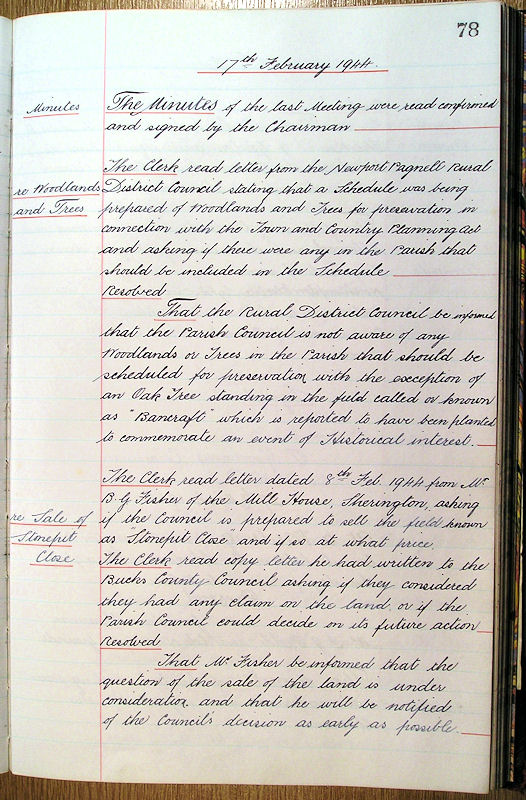 78
17th February 1944.
Minutes
The Minutes of the last Meeting were read confirmed
and signed by the Chairman
re Woodlands
and Trees
The Clerk read letter from the Newport Pagnell Rural
District Council stating that a Schedule was being
prepared of Woodlands and Trees for preservation in
connection with the Town and Country Planning Act
and asking if there were any in the Parish that
should be included in the Schedule
Resolved
That the Rural District Council be informed
that the Parish Council is not aware of any
Woodlands or Trees in the Parish that should be
scheduled for preservation with the exception of
an Oak Tree standing in the field called or known
as "Bancraft" which is reported to have been planted
to commemorate an event of Historical interest.
re Sale of
Stonepit
Close
The Clerk read letter dated 8th Feb. 1944 from Mr.
B. G Fisher of the Mill House, Sherington, asking
if the Council is prepared to sell the field known
as Stonepit Close and if so at what price.
The Clerk read copy letter he had written to the
Bucks County Council asking if they considered
they had any claim on the land, or if the
Parish Council could decide on its future action
Resolved
That Mr. Fisher be informed that the
question of the sale of the land is under
consideration and that he will be notified
of the Council's decision as early as possible.